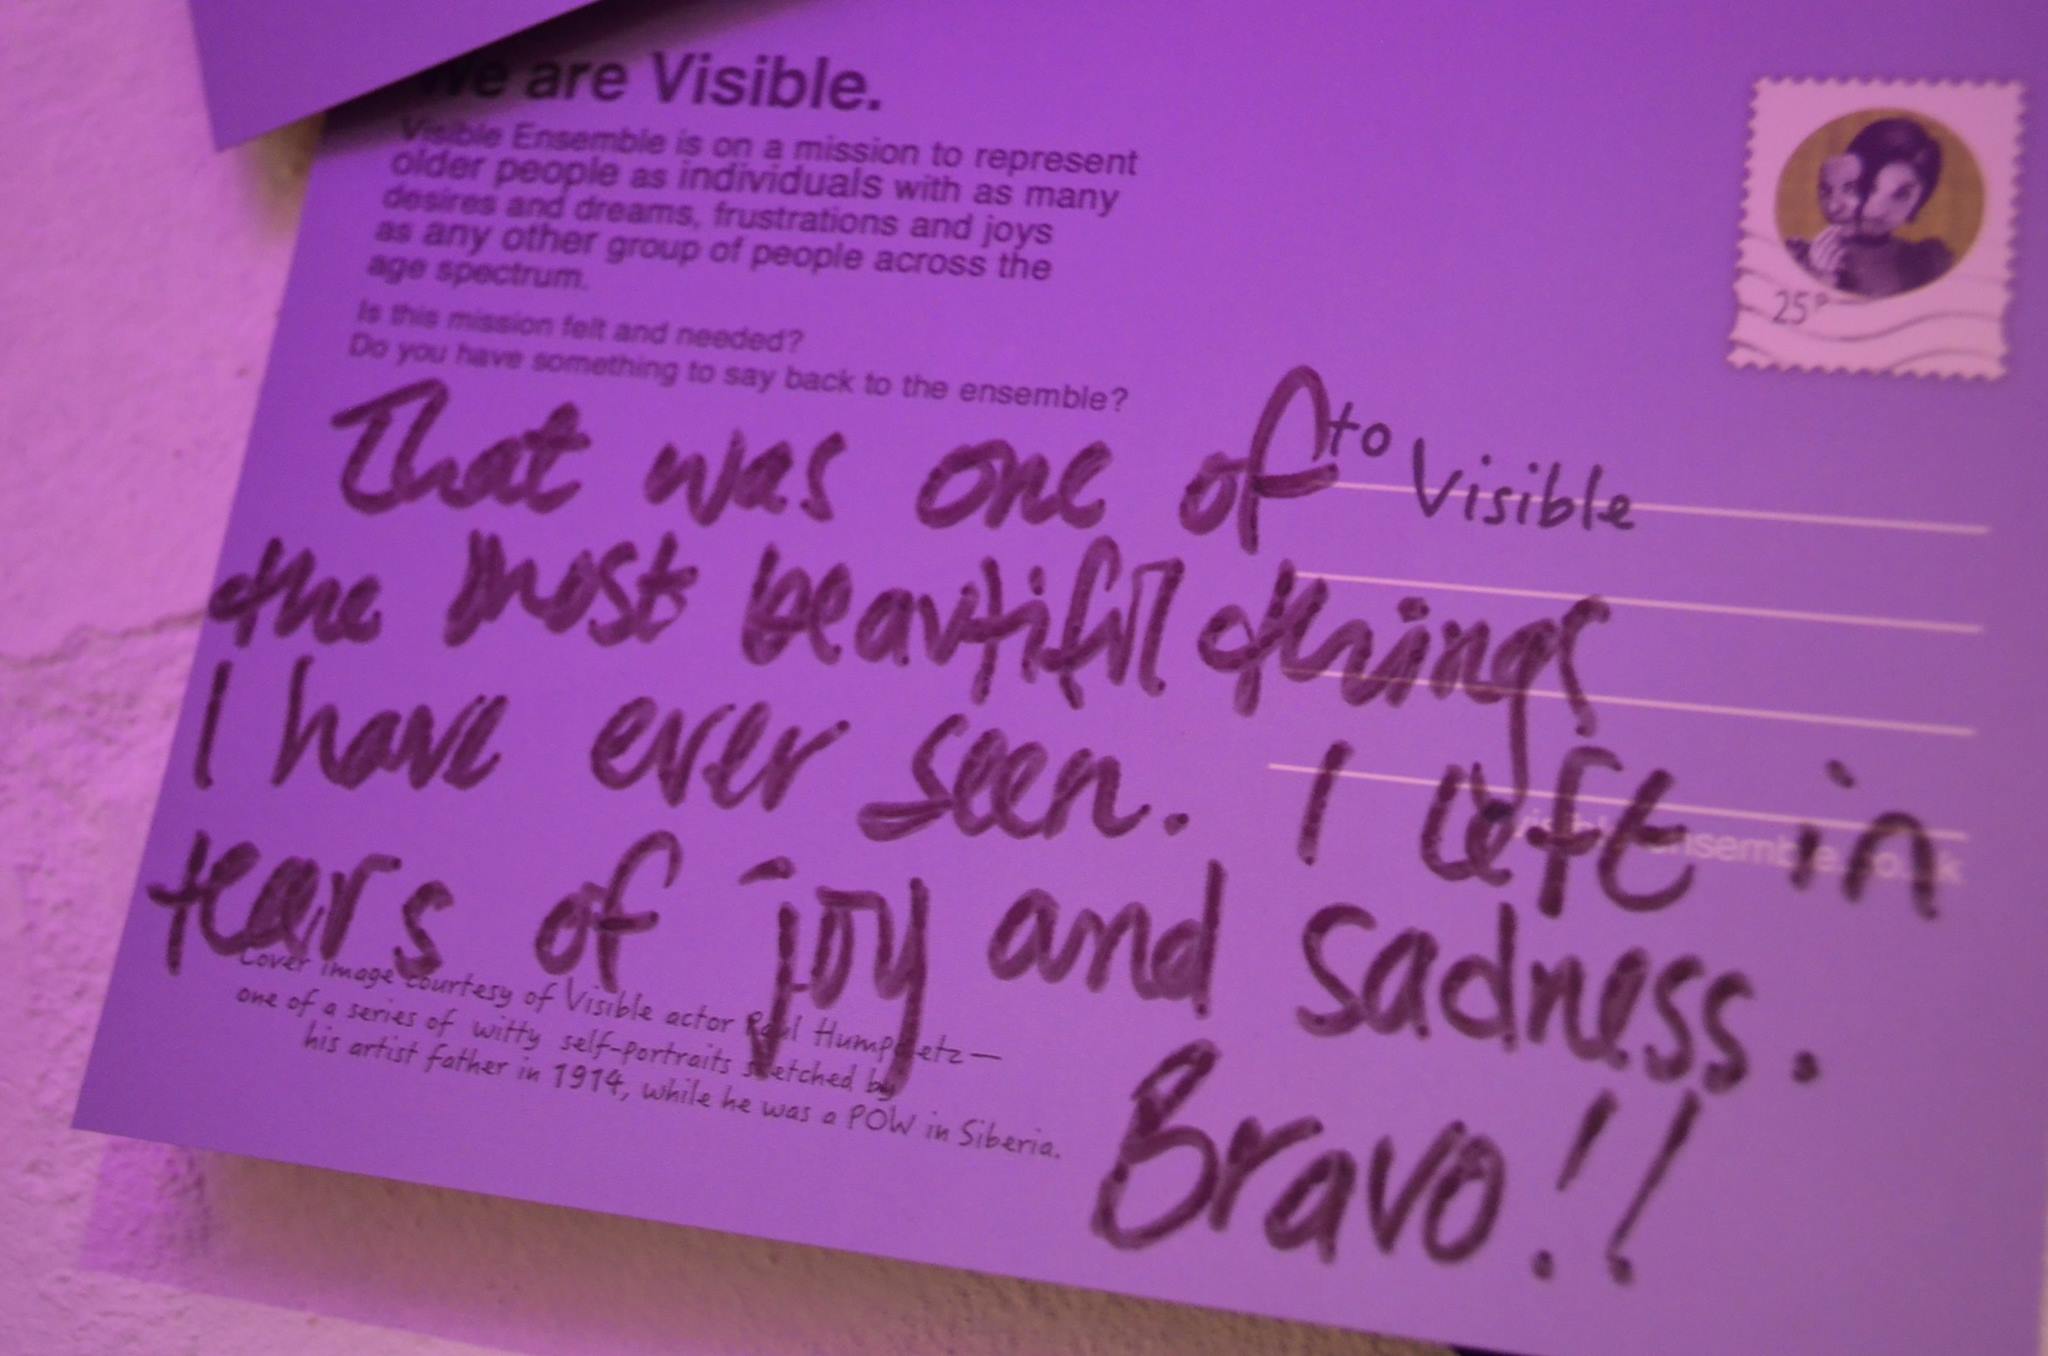 We are Visible.
Visible Ensemble is on a mission to represent
older people as individuals with as many
desires and dreams, frustrations and joys
as any other group of people across the
age spectrum.
Is this mission felt and needed?
Do you have something to say back to the ensemble?
25P
to Visible
That was one of
the most beautiful things
I have ever seen. I left in
tears of joy and sadness.
Bravo!!
visibleensemble.co.uk
Cover image courtesy of Visible actor Paul
one of a series of witty self-portraits sketched by
his artist father in 1914, while he was a POW in Siberia.